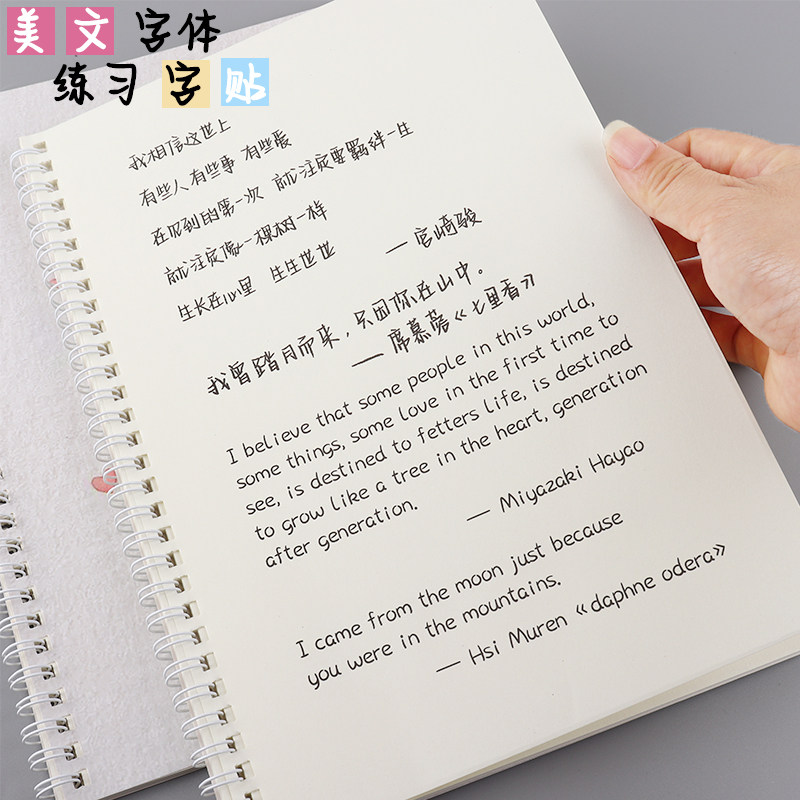 美文字体
练习字贴
我相信这世上
有些人有些事 有些爱
在见到的第一次 就注定要羁绊一生
就注定像一棵树一样
生长在心里 生生世世
— 宫崎骏
我曾踏月而来，只因你在山中。
— 席慕蓉《七里香》
I believe that some people in this world,
some things, some love in the first time to
see, is destined to fetters life, is destined
to grow like a tree in the heart, generation
after generation.
— Miyazaki Hayao
I came from the moon just because
you were in the mountains.
— Hsi Muren《daphne odera》